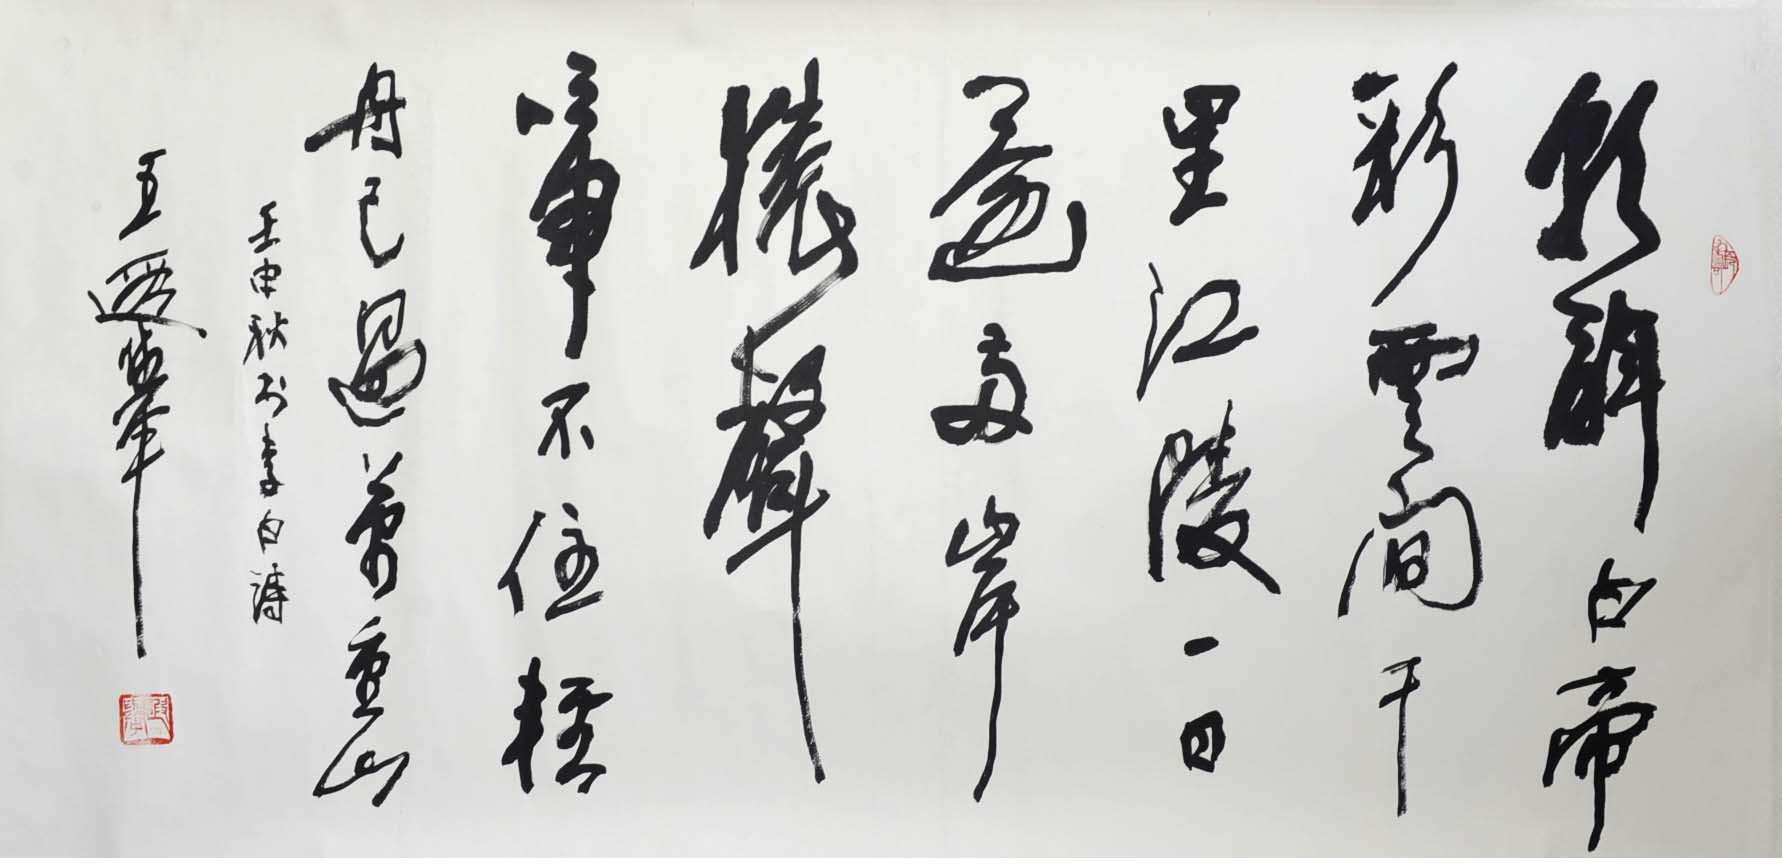 朝辭白帝
彩雲間千
里江陵一日
還兩岸
猿聲
啼不住輕
舟已過萬重山
壬申秋書李白詩
王遐舉